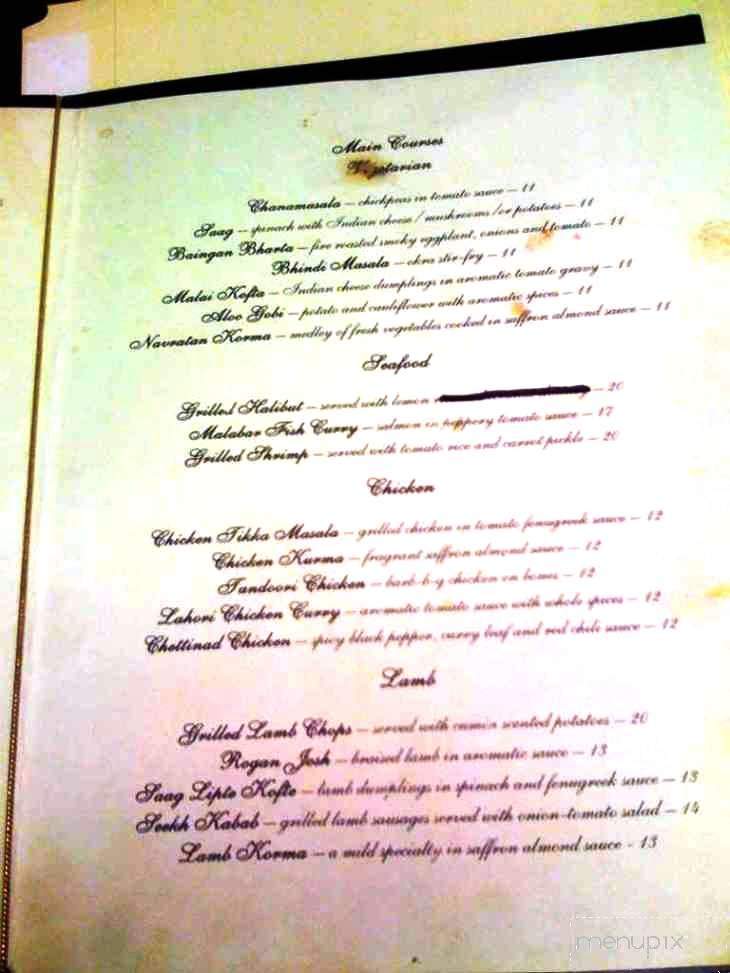 Main Courses
Vegetarian
Chanamasala – chickpeas in tomato sauce – 11
Saag – spinach with Indian cheese / mushrooms /or potatoes – 11
Baingan Bharta – fire roasted smoky eggplant, onions and tomato – 11
Bhindi Masala – okra stir-fry – 11
Malai Kofta – Indian cheese dumplings in aromatic tomato gravy – 11
Aloo Gobi – potato and cauliflower with aromatic spices – 11
Navratan Korma – medley of fresh vegetables cooked in saffron almond sauce – 11
Seafood
Grilled Halibut – served with lemon – 20
Malabar Fish Curry – salmon in peppery tomato sauce – 17
Grilled Shrimp – served with tomato rice and carrot pickle – 20
Chicken
Chicken Tikka Masala – grilled chicken in tomato fenugreek sauce – 12
Chicken Kurma – fragrant saffron almond sauce – 12
Tandoori Chicken – barb-b-q chicken on bones – 12
Lahori Chicken Curry – aromatic tomato sauce with whole spices – 12
Chettinad Chicken – spicy black pepper, curry leaf and red chili sauce – 12
Lamb
Grilled Lamb Chops – served with cumin scented potatoes – 20
Rogan Josh – braised lamb in aromatic sauce – 13
Saag Lipto Kofte – lamb dumplings in spinach and fenugreek sauce – 13
Seekh Kabab – grilled lamb sausages served with onion-tomato salad – 14
Lamb Korma – a mild specialty in saffron almond sauce - 13
menupix